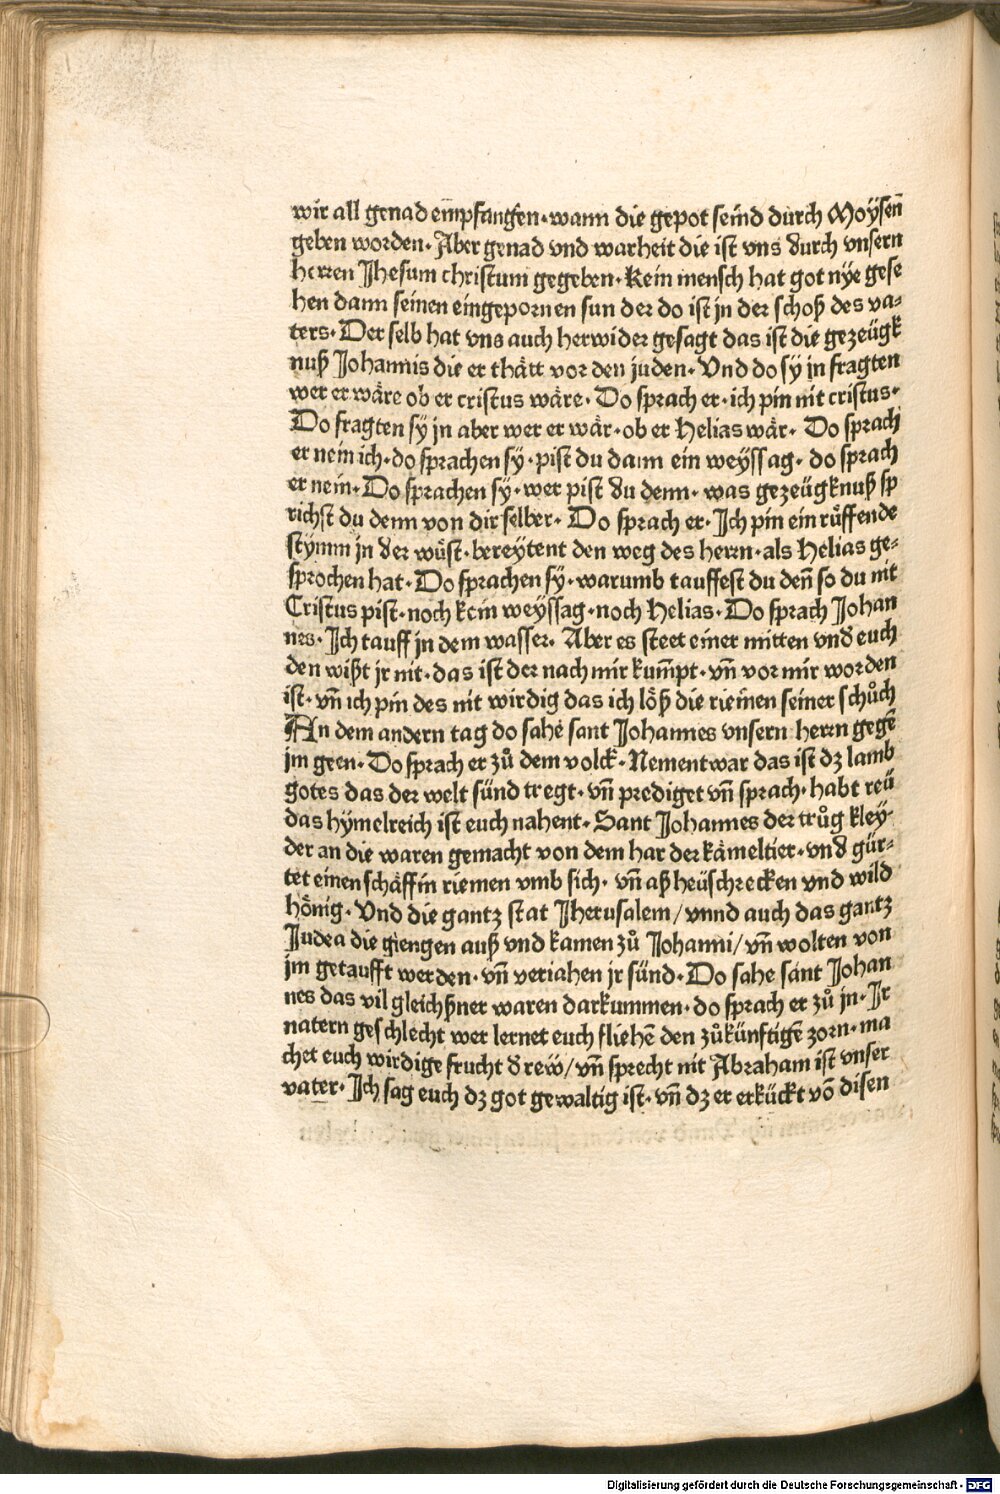 wir all genad em̄pfangen·wann die gepot seind durch Moyſen̄
geben worden·Aber genad vnd warheit die iſt vns durch vnſern
herren Jheſum chriſtum gegeben·Kein menſch hat got nye geſe
hen dann ſeinen eingepornen ſun der do iſt in der ſchoß des va⸗
ters·Der ſelb hat vns auch herwider geſagt das iſt die gezeügk
nuß Johannis die er thått vor den juden·Vnd do ſy jn fragten
wer er wåre ob er criſtus wåre·Do ſprach er·ich pin nit criſtus·
Do fragten ſy jn aber wer er wår·ob er Helias wår·Do ſprach
er nein ich·do ſprachen ſy·piſt du dann ein weyſſag·do ſprach
er nein·Do ſprachen ſy·wer piſt du denn·was gezeügknuß ſp
richſt du denn von dir ſelber·Do ſprach er·Ich pin ein růffende
ſtymm jn der wůſt·bereytent den weg des herrn·als Helias ge⸗
ſprochen hat·Do ſprachen ſy·warumb tauffeſt du den̄ ſo du nit
Criſtus piſt·noch kein weyſſag·noch Helias·Do ſprach Johan
nes·Ich tauff jn dem waſſer·Aber es ſteet einer mitten vnd euch
den wißt jr nit·das iſt der nach mir kum̄pt·vn̄ vor mir worden
iſt·vn̄ ich pin des nit wirdig das ich lôß die riem̄en ſeiner ſchůch
An dem andern tag do ſahe ſant Johannes vnſern herrn gegē
jm geen·Do ſprach er zů dem volck·Nement war das iſt dz lamb
gotes das der welt ſünd tregt·vn̄ prediget vn̄ ſprach·habt reü
das hymelreich iſt euch nahent·Sant Johannes der trůg kley⸗
der an die waren gemacht von dem har der kåmeltier·vnd gür⸗
tet einen ſchåffin riemen vmb ſich·vn̄ aß heüſchrecken vnd wild
hônig·Vnd die gantz ſtat Jheruſalem/vnnd auch das gantz
Judea die giengen auß vnd kamen zů Johanni/vn̄ wolten von
jm getaufft werden·vn̄ veriahen jr ſünd·Do ſahe ſant Johan
nes das vil gleichßner waren darkummen·do ſprach er zů jn·Ir
natern geſchlecht wer lernet euch fliehē den zůkünftigē zorn·ma
chet euch wirdige frucht d rew/vn̄ ſprecht nit Abraham iſt vnſer
vater·Ich ſag euch dz got gewaltig iſt·vn̄ dz er erkückt vō diſen
Digitalisierung gefördert durch die Deutsche Forschungsgemeinschaft - DFG